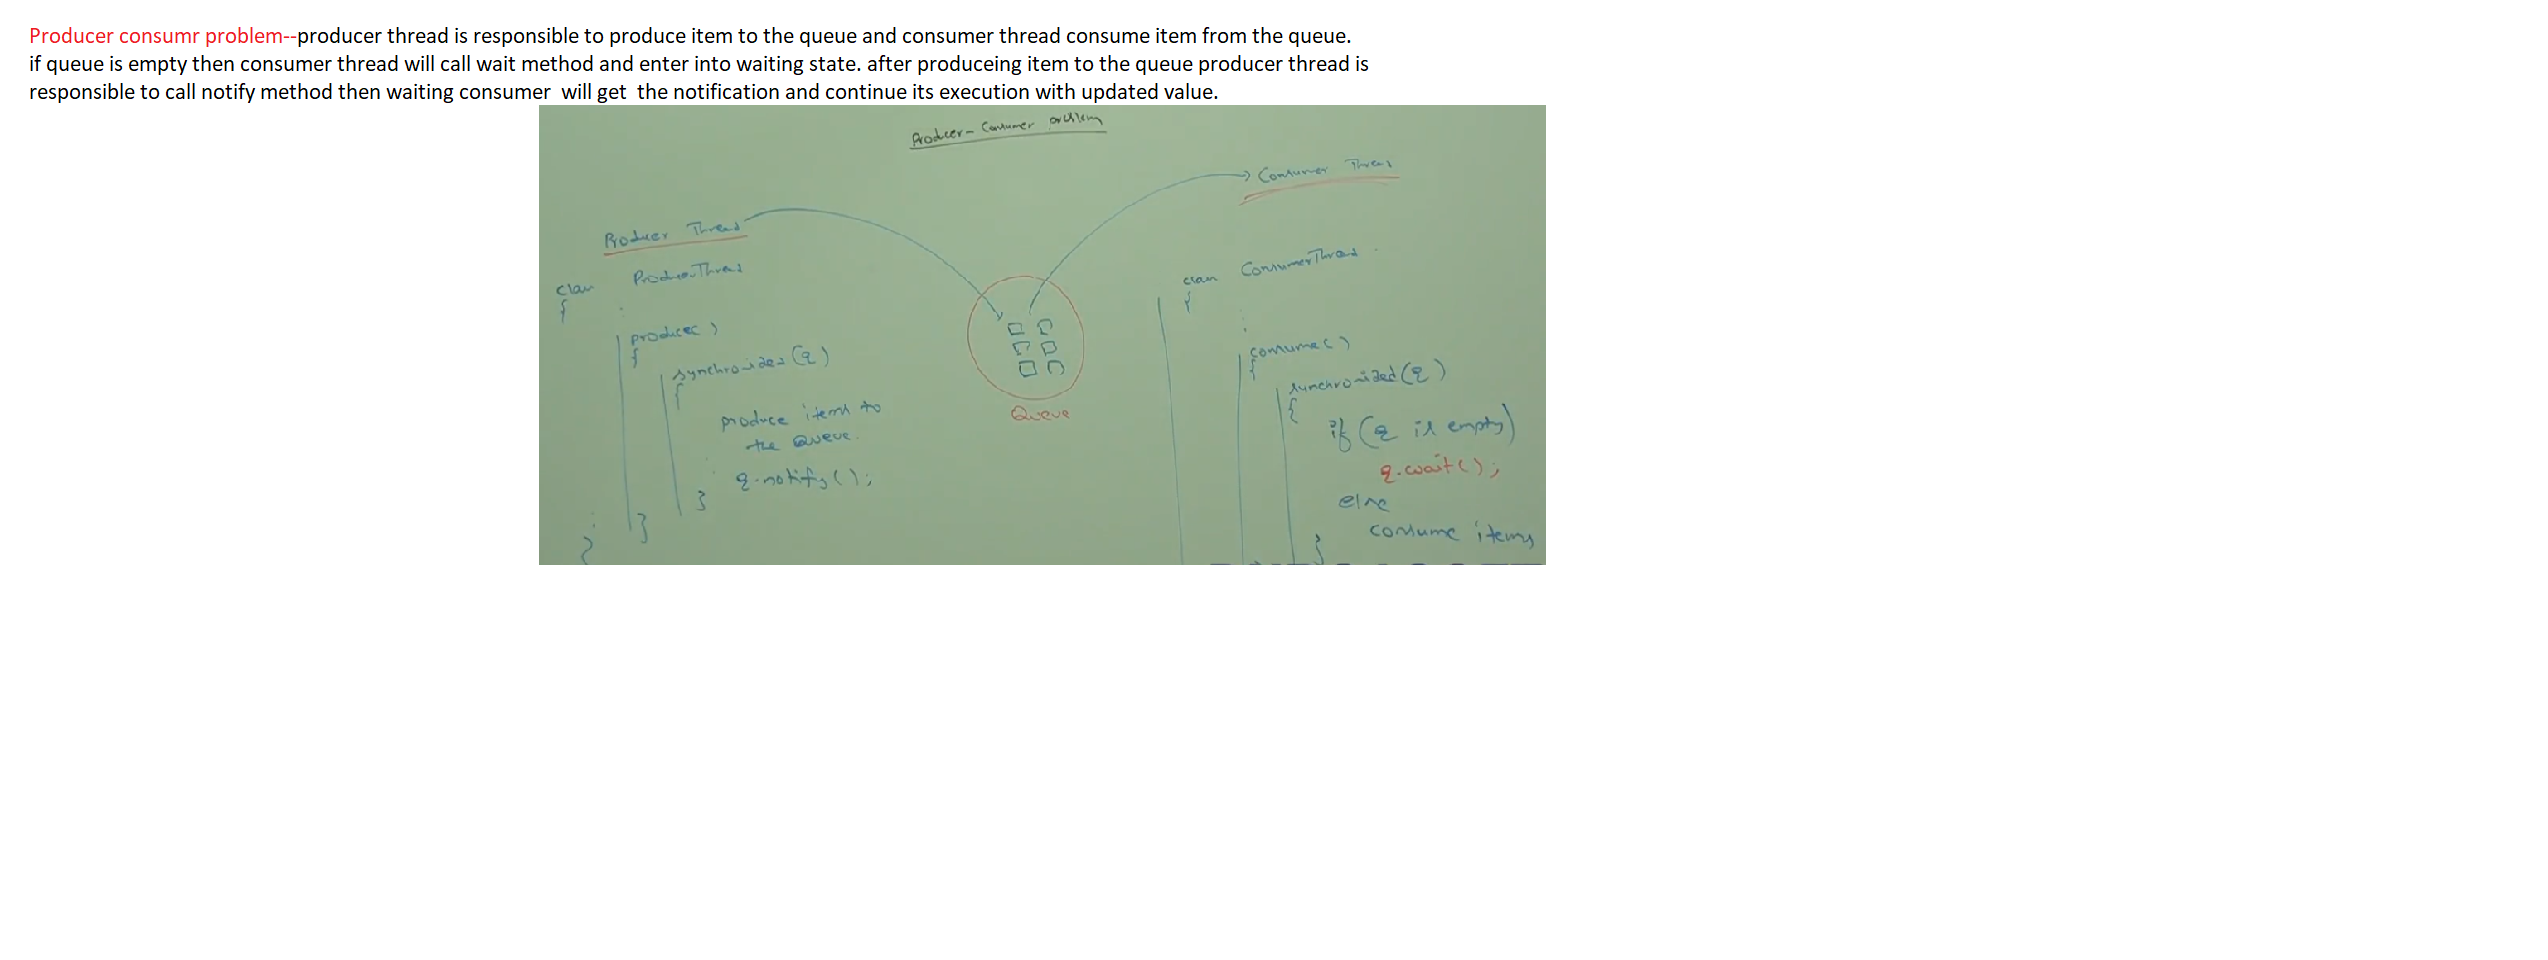 Producer consumr problem--producer thread is responsible to produce item to the queue and consumer thread consume item from the queue.
if queue is empty then consumer thread will call wait method and enter into waiting state. after produceing item to the queue producer thread is
responsible to call notify method then waiting consumer  will get  the notification and continue its execution with updated value.
Producer-Consumer problem
Producer Thread
class ProducerThread
{
produce()
{
synchronized(q)
{
produce items to
the Queue.
q.notify();
}
}
}
Queue
Consumer Thread
class ConsumerThread
{
consume()
{
synchronized(q)
{
if(q is empty)
q.wait();
else
consume items
}